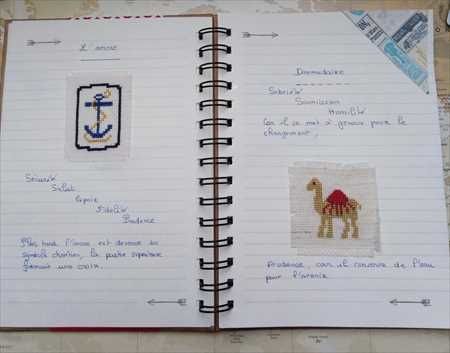 L'ancre
Sécurité
Salut
Espoir
Fidélité
Prudence
Plus tard l'ancre est devenue un
symbole chrétien, la partie supérieure
formant une croix.
Dromadaire
Sobriété
Soumission
Humilité
Car il se met à genoux pour le
chargement,
Prudence, car il conserve de l'eau
pour l'avenir.